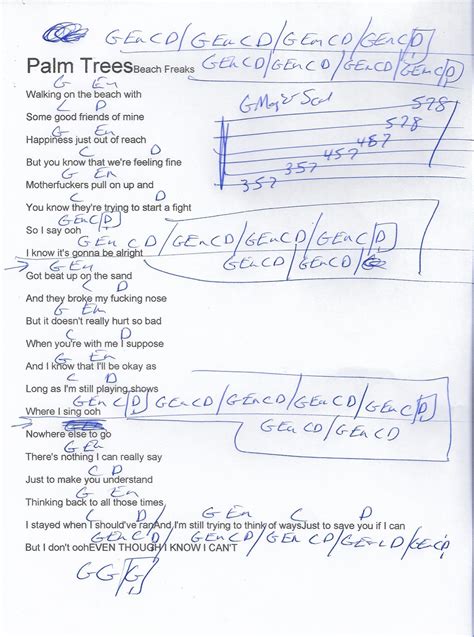 G Em C D / G Em C D / G Em C D / G Em C D
Palm Trees Beach Freaks G Em C D / G Em C D / G Em C D / G Em C D
G Em
Walking on the beach with
C D
Some good friends of mine
G Em
Happiness just out of reach
C D
But you know that we're feeling fine
G Em
Motherfuckers pull on up and
C D
You know they're trying to start a fight
G Em C D
So I say ooh
G Em C D / G Em C D / G Em C D / G Em C D
I know it's gonna be alright
G Em C D / G Em C D
G Em
Got beat up on the sand
C D
And they broke my fucking nose
G Em
But it doesn't really hurt so bad
C D
When you're with me I suppose
G Em
And I know that I'll be okay as
C D
Long as I'm still playing shows
Where I sing ooh G Em C D G Em C D / G Em C D / G Em C D / G Em C D
G Em C D / G Em C D
Nowhere else to go
G Em
There's nothing I can really say
C D
Just to make you understand
G Em
Thinking back to all those times
C D G Em C D
I stayed when I should've ranAnd I'm still trying to think of waysJust to save you if I can
G Em C D / G Em C D / G Em C D / G Em C D / G Em C D
But I don't oohEVEN THOUGH I KNOW I CAN'T
G G G
G Major
578
578
467
457
357
357